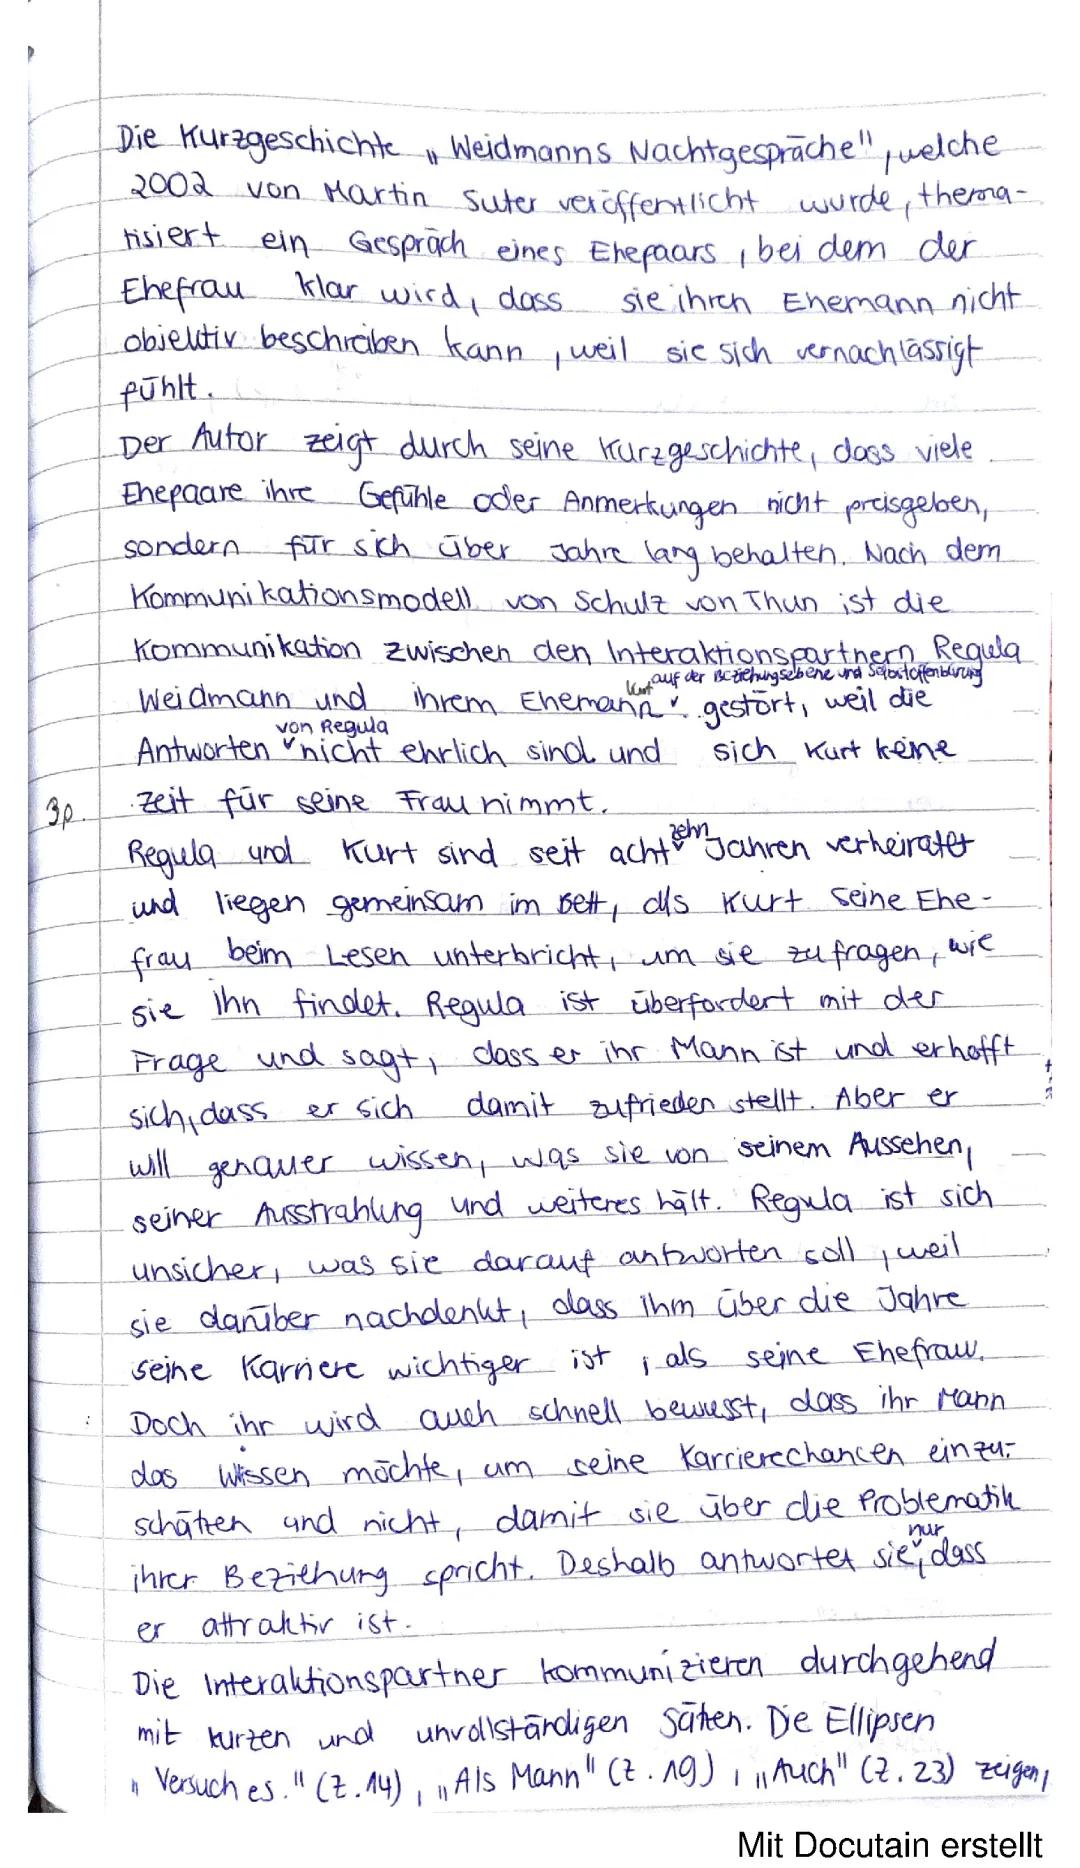 Die Kurzgeschichte „Weidmanns Nachtgespräche", welche
2002 von Martin Suter veröffentlicht wurde, thema-
tisiert ein Gespräch eines Ehepaars, bei dem der
Ehefrau klar wird, dass sie ihren Ehemann nicht
objektiv beschreiben kann, weil sie sich vernachlässigt
fühlt.
Der Autor zeigt durch seine Kurzgeschichte, dass viele
Ehepaare ihre Gefühle oder Anmerkungen nicht preisgeben,
sondern für sich über Jahre lang behalten. Nach dem
Kommunikationsmodell von Schulz von Thun ist die
Kommunikation zwischen den Interaktionspartnern Regula
Kurt auf der Beziehungsebene und Selbstoffenbarung
Weidmann und ihrem Ehemann gestört, weil die
von Regula
Antworten nicht ehrlich sind und sich Kurt keine
3p. Zeit für seine Frau nimmt.
zehn
Regula und Kurt sind seit acht Jahren verheiratet
und liegen gemeinsam im Bett, als Kurt seine Ehe-
frau beim Lesen unterbricht, um sie zu fragen, wie
sie ihn findet. Regula ist überfordert mit der
Frage und sagt, dass er ihr Mann ist und erhofft
sich, dass er sich damit zufrieden stellt. Aber er
will genauer wissen, was sie von seinem Aussehen,
seiner Ausstrahlung und weiteres hält. Regula ist sich
unsicher, was sie darauf antworten soll, weil
sie darüber nachdenkt, dass ihm über die Jahre
seine Karriere wichtiger ist, als seine Ehefrau.
Doch ihr wird auch schnell bewusst, dass ihr Mann
das Wissen möchte, um seine Karrierechancen einzu-
schätzen und nicht, damit sie über die Problematik
nur
ihrer Beziehung spricht. Deshalb antwortet sie, dass
er attraktiv ist.
Die Interaktionspartner kommunizieren durchgehend
mit kurzen und unvollständigen Sätzen. Die Ellipsen
„Versuch es." (Z. 14), „Als Mann" (Z. 19), „Auch" (Z. 23) zeigen,
Mit Docutain erstellt